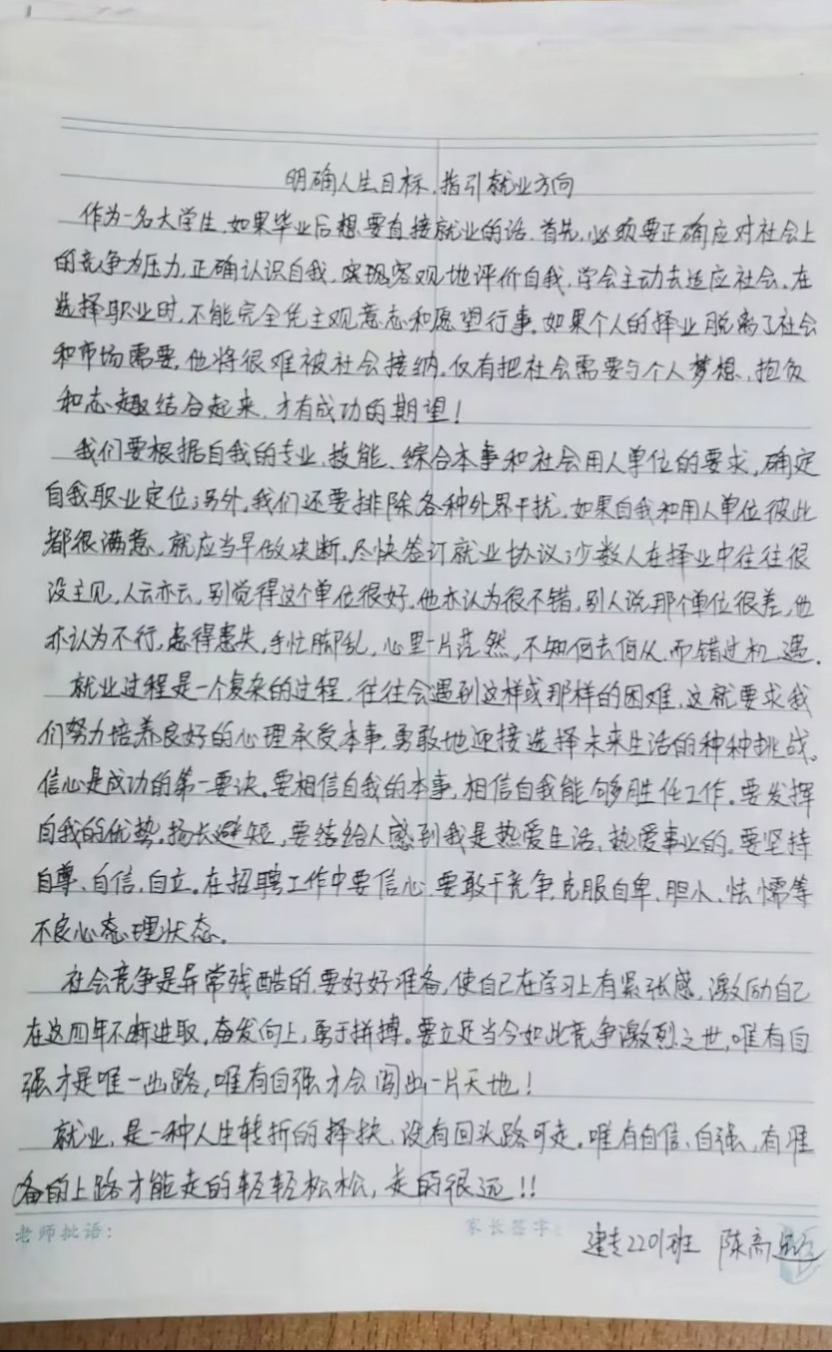 明确人生目标,指引就业方向
作为一名大学生,如果毕业后想要直接就业的话,首先,必须要正确应对社会上
的竞争为压力,正确认识自我,实现客观地评价自我,学会主动去适应社会。在
选择职业时,不能完全凭主观意志和愿望行事。如果个人的择业脱离了社会
和市场需要,他将很难被社会接纳。仅有把社会需要与个人梦想、抱负
和志趣结合起来,才有成功的期望!
我们要根据自我的专业、技能、综合本事和社会用人单位的要求,确定
自我职业定位;另外,我们还要排除各种外界干扰,如果自我和用人单位彼此
都很满意,就应当早做决断。尽快签订就业协议;少数人在择业中往往很
没主见,人云亦云,别觉得这个单位很好,他亦认为很不错,别人说那个单位很差,他
亦认为不行,患得患失,手忙脚乱,心里一片茫然,不知何去何从,而错过机遇。
就业过程是一个复杂的过程,往往会遇到这样或那样的困难,这就要求我
们努力培养良好的心理承受本事,勇敢地迎接选择未来生活的种种挑战。
信心是成功的第一要诀。要相信自我的本事,相信自我能够胜任工作。要发挥
自我的优势,扬长避短,要给人感到我是热爱生活,热爱事业的。要坚持
自尊、自信、自立。在招聘工作中要信心,要敢于竞争,克服自卑、胆小、怯懦等
不良心态理状态。
社会竞争是异常残酷的,要好好准备,使自己在学习上有紧张感,激励自己
在这四年不断进取,奋发向上,勇于拼搏。要立足当今如此竞争激烈之世,唯有自
强才是唯一出路,唯有自强才会闯出一片天地!
就业,是一种人生转折的择抉,没有回头路可走。唯有自信、自强,有准
备的上路才能走的轻轻松松,走的很远!!
老师批语: 家长签字:
建专2201班 陈高